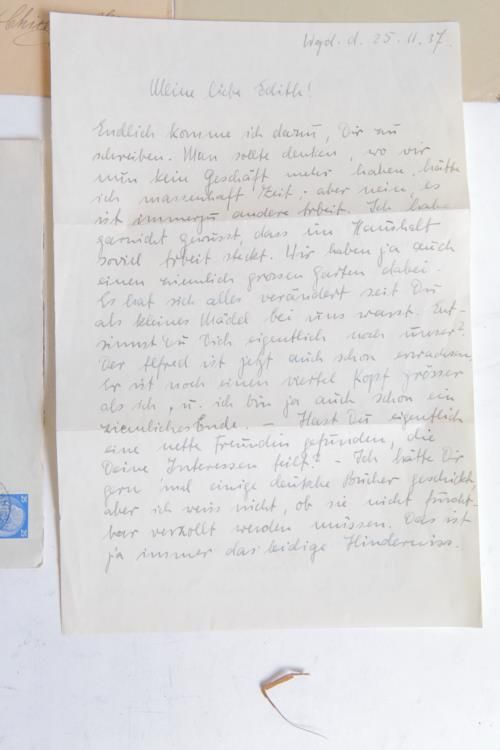 Wgd. d. 25.11.37.
Meine liebe Edith!
Endlich komme ich dazu, Dir zu
schreiben. Man sollte denken, wo wir
nun kein Geschäft mehr haben, hätte
ich massenhaft Zeit; aber nein, es
ist immerzu andere Arbeit. Ich habe
garnicht gewusst, dass im Haushalt
soviel Arbeit steckt. Wir haben ja auch
einen ziemlich grossen Garten dabei.
Es hat sich alles verändert seit Du
als kleines Mädel bei uns warst. Ent-
sinnst Du Dich eigentlich noch unser?
Der Alfred ist jetzt auch schon erwachsen,
Er ist noch einen viertel Kopf grösser
als ich, u. ich bin ja auch schon ein
ziemliches Ende. – Hast Du eigentlich
eine nette Freundin gefunden, die
Deine Interessen teilt? – Ich hätte Dir
gern 'mal einige deutsche Bücher geschickt,
aber ich weiss nicht, ob sie nicht furcht-
bar verzollt werden müssen. Das ist
ja immer das leidige Hinderniss.
25